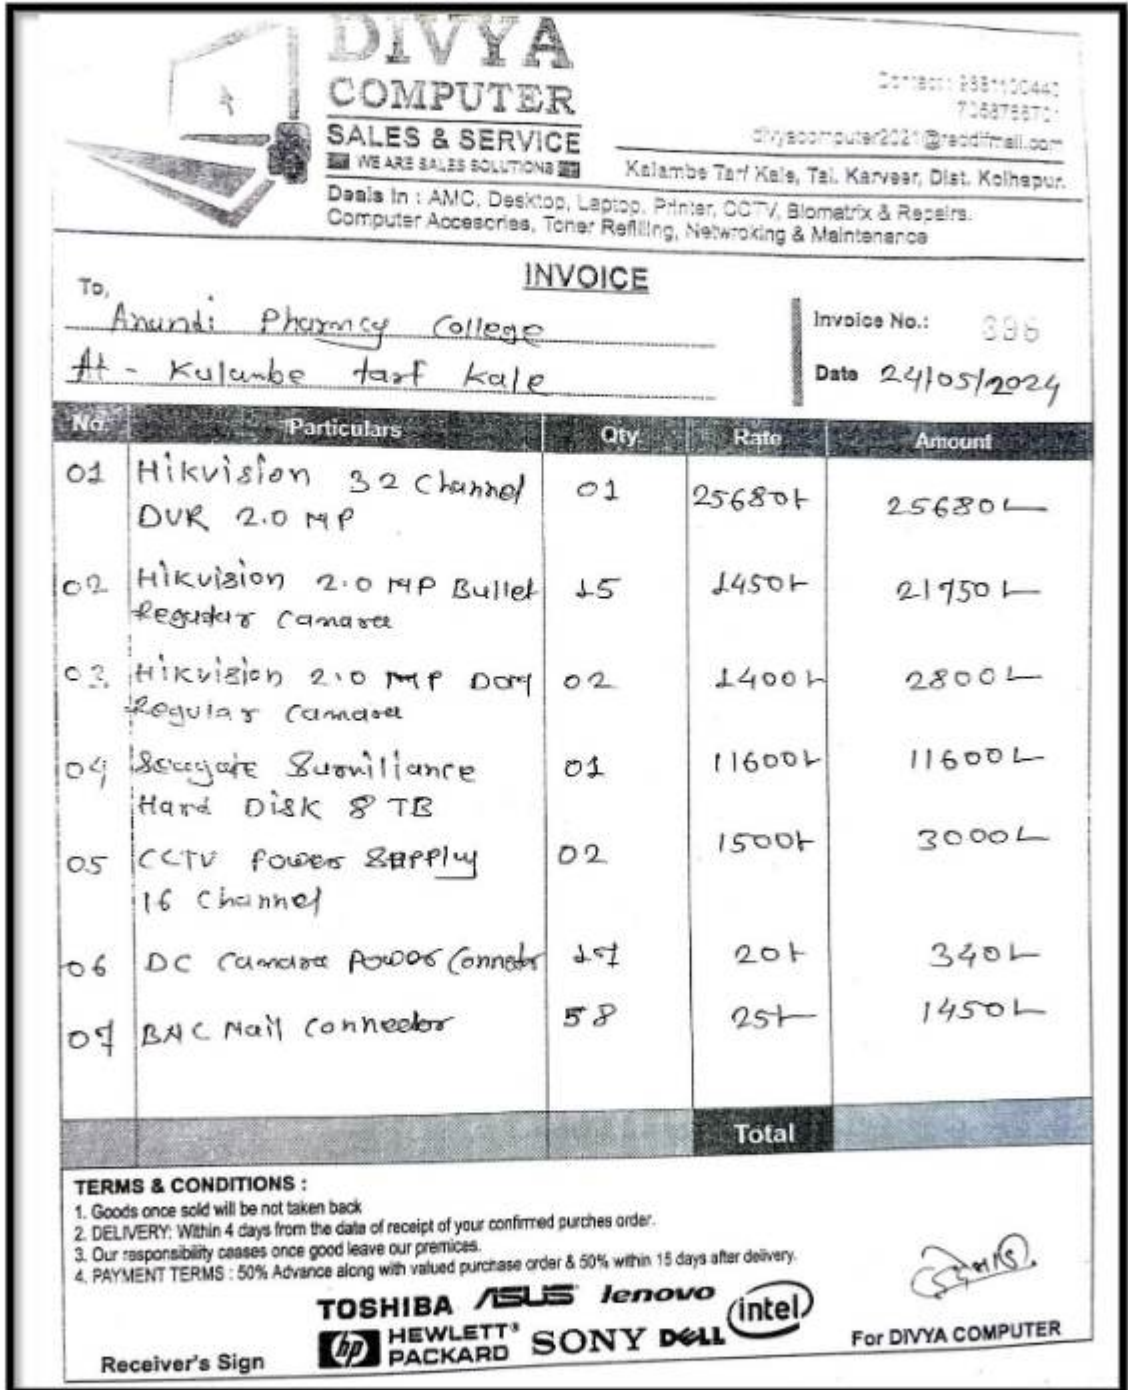 DIVYA
COMPUTER
SALES & SERVICE
WE ARE SALES SOLUTIONS
Contact : 9881100440
divyacomputer2021@rediffmail.com
Kalambe Tarf Kale, Tal. Karveer, Dist. Kolhapur.
Deals In : AMC, Desktop, Laptop, Printer, CCTV, Biomatrix & Repairs.
Computer Accesories, Toner Refilling, Netwroking & Maintenance
INVOICE
To,
Anandi Pharmcy College
At - Kulambe tarf Kale
Invoice No.: 396
Date 24/05/2024
No. Particulars Qty Rate Amount
01 Hikvision 32 Channel 01 25680/- 25680/-
DVR 2.0 MP
02 Hikvision 2.0 MP Bullet 15 1450/- 21750/-
Regular Camara
03 Hikvision 2.0 MP Dom 02 1400/- 2800/-
Regular Camara
04 Seagate Surviliance 01 11600/- 11600/-
Hard Disk 8 TB
05 CCTV Power Supply 02 1500/- 3000/-
16 Channel
06 DC Camara Power Connector 17 20/- 340/-
07 BNC Mail Connector 58 25/- 1450/-
Total
TERMS & CONDITIONS :
1. Goods once sold will be not taken back
2. DELIVERY: Within 4 days from the date of receipt of your confirmed purches order.
3. Our responsibility ceases once good leave our premices.
4. PAYMENT TERMS : 50% Advance along with valued purchase order & 50% within 15 days after delivery.
TOSHIBA ASUS lenovo intel
hp HEWLETT PACKARD SONY DELL
Receiver's Sign
For DIVYA COMPUTER